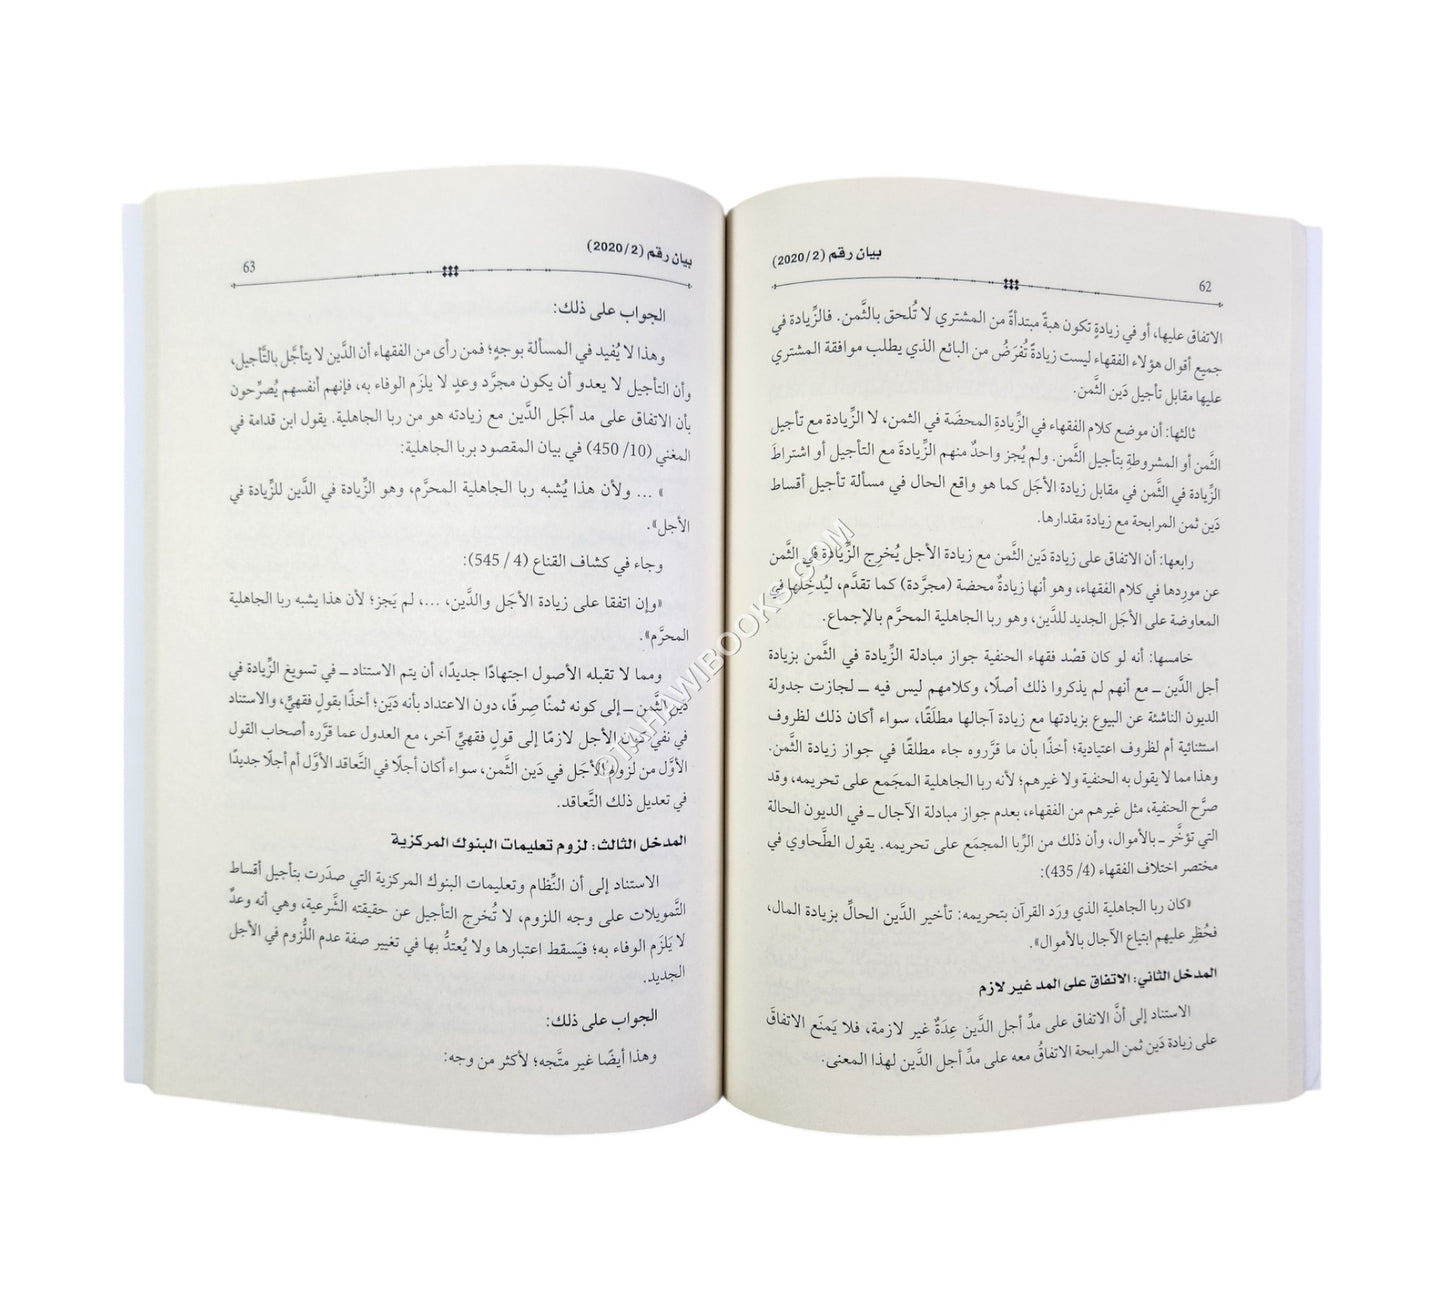 بيان رقم (2020/2)
62
الاتفاق عليها، أو في زيادةٍ تكون هبةً مبتدأةً من المشتري لا تُلحق بالثَّمن. فالزِّيادة في
جميع أقوال هؤلاء الفقهاء ليست زيادةً تُفرَضُ من البائع الذي يطلب موافقة المشتري
عليها مقابل تأجيل دَين الثَّمن.
ثالثها: أن موضع كلام الفقهاء في الزِّيادةِ المحضَة في الثمن، لا الزِّيادة مع تأجيل
الثَّمن أو المشروطةِ بتأجيل الثَّمن. ولم يُجز واحدٌ منهم الزِّيادةَ مع التأجيل أو اشتراطَ
الزِّيادة في الثَّمن في مقابل زيادة الأجَل كما هو واقع الحال في مسألة تأجيل أقساط
دَين ثمن المرابحة مع زيادة مقدارها.
رابعها: أن الاتفاق على زيادة دَين الثَّمن مع زيادة الأجل يُخرِج الزِّيادة في الثَّمن
عن مورِدها في كلام الفقهاء، وهو أنها زيادةٌ محضة (مجرَّدة) كما تقدَّم، ليُدخِلَها في
المعاوضة على الأجَل الجديد للدَّين، وهو ربا الجاهلية المحرَّم بالإجماع.
خامسها: أنه لو كان قصْد فقهاء الحنفية جواز مبادلة الزِّيادة في الثَّمن بزيادة
أجل الدَّين ــ مع أنهم لم يذكروا ذلك أصلًا، وكلامهم ليس فيه ــ لجازت جدولة
الديون الناشئة عن البيوع بزيادتها مع زيادة آجالها مطلَقًا، سواء أكان ذلك لظروف
استثنائية أم لظروف اعتيادية؛ أخذًا بأن ما قرَّروه جاء مطلقًا في جواز زيادة الثَّمن.
وهذا مما لا يقول به الحنفية ولا غيرهم؛ لأنه ربا الجاهلية المجمَع على تحريمه، وقد
صرَّح الحنفية، مثل غيرهم من الفقهاء، بعدم جواز مبادلة الآجال ــ في الديون الحالة
التي تؤخَّر ــ بالأموال، وأن ذلك من الرِّبا المجمَع على تحريمه. يقول الطَّحاوي في
مختصر اختلاف الفقهاء (4/ 435):
«كان ربا الجاهلية الذي ورَد القرآن بتحريمه: تأخير الدَّين الحالِّ بزيادة المال،
فحُظِر عليهم ابتياع الآجال بالأموال».
المدخل الثاني: الاتفاق على المد غير لازم
الاستناد إلى أنَّ الاتفاق على مدِّ أجل الدَّين عِدَةٌ غير لازمة، فلا يَمنَع الاتفاقَ
على زيادة دَين ثمن المرابحة الاتفاقُ معه على مدِّ أجل الدَّين لهذا المعنى.
بيان رقم (2020/2)
63
الجواب على ذلك:
وهذا لا يُفيد في المسألة بوجهٍ؛ فمن رأى من الفقهاء أن الدَّين لا يتأجَّل بالتَّأجيل،
وأن التأجيل لا يعدو أن يكون مجرَّد وعدٍ لا يلزَم الوفاء به، فإنهم أنفسهم يُصرِّحون
بأن الاتفاق على مد أجَل الدَّين مع زيادته هو من ربا الجاهلية. يقول ابن قدامة في
المغني (10/ 450) في بيان المقصود بربا الجاهلية:
« ... ولأن هذا يُشبه ربا الجاهلية المحرَّم، وهو الزِّيادة في الدَّين للزِّيادة في
الأجل».
وجاء في كشاف القناع (4 / 545):
«وإن اتفقا على زيادة الأجَل والدَّين، ...، لم يَجز؛ لأن هذا يشبه ربا الجاهلية
المحرَّم».
ومما لا تقبله الأصول اجتهادًا جديدًا، أن يتم الاستناد ــ في تسويغ الزِّيادة في
دَين الثَّمن ــ إلى كونه ثمنًا صِرفًا، دون الاعتداد بأنه دَيَن؛ أخذًا بقولٍ فقهيٍّ، والاستناد
في نفي كون الأجل لازمًا إلى قولٍ فقهيٍّ آخر، مع العدول عما قرَّره أصحاب القول
الأوَّل من لزوم الأجَل في دَين الثَّمن، سواء أكان أجلًا في التَّعاقد الأوَّل أم أجلًا جديدًا
في تعديل ذلك التَّعاقد.
المدخل الثالث: لزوم تعليمات البنوك المركزية
الاستناد إلى أن النِّظام وتعليمات البنوك المركزية التي صدَرت بتأجيل أقساط
التَّمويلات على وجه اللزوم، لا تُخرج التأجيل عن حقيقته الشَّرعية، وهي أنه وعدٌ
لا يَلزَم الوفاء به؛ فيَسقط اعتبارها ولا يُعتدُّ بها في تغيير صفة عدم اللُّزوم في الأجل
الجديد.
الجواب على ذلك:
وهذا أيضًا غير متَّجه؛ لأكثر من وجه:
@TAHAWIBOOKS.COM